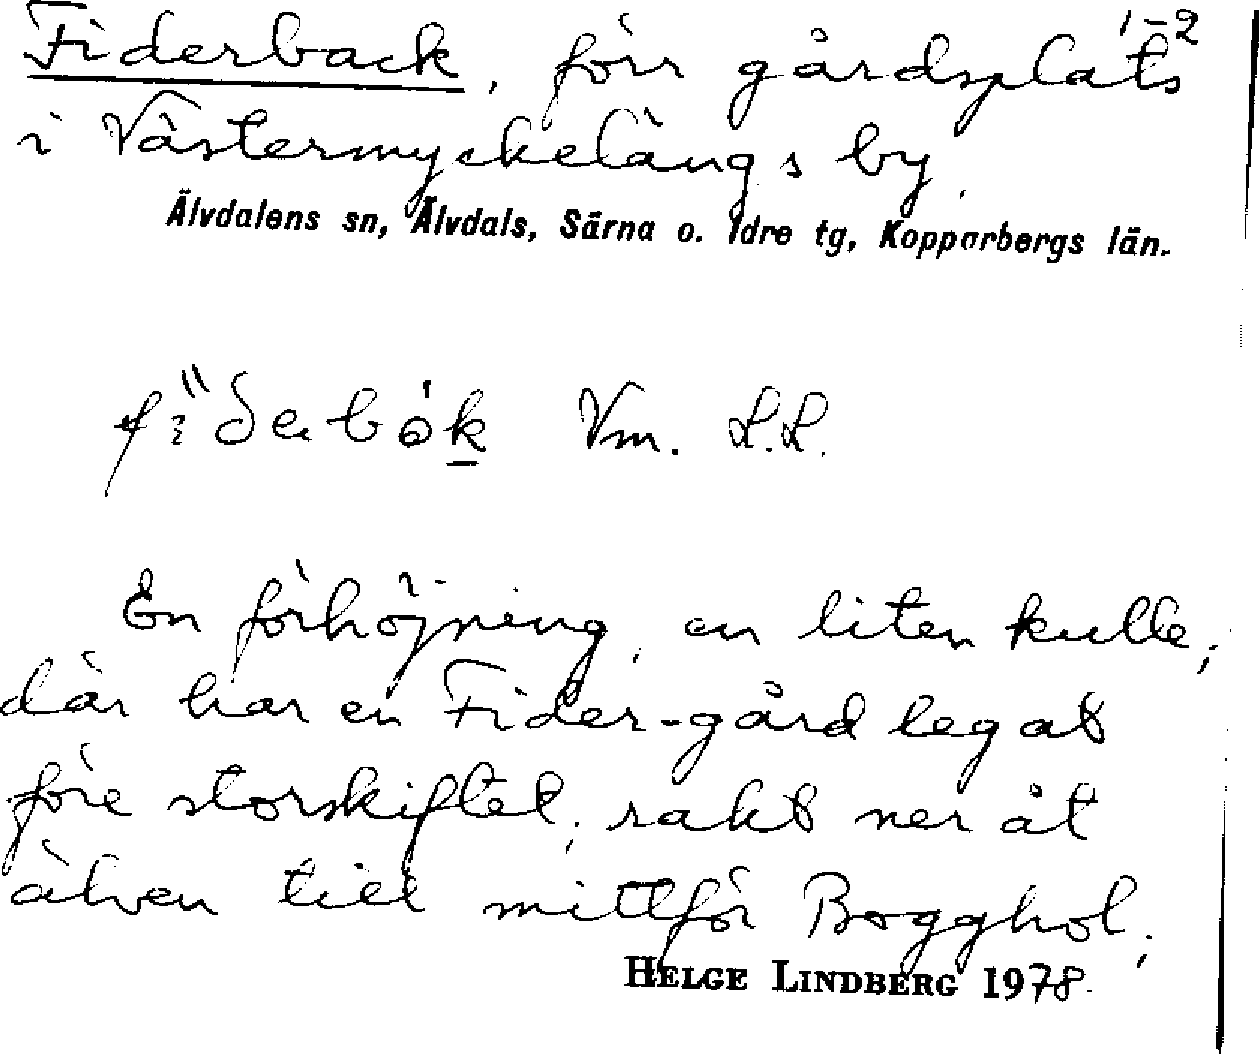 Fiderback, förr gårdsplats 1–2
i Västermyckelängs by.
Älvdalens sn, Älvdals, Särna o. Idre tg, Kopparbergs län.
Vm. L.L.
En förhöjning, en liten kulle,
där har en Fider-gård legat
före storskiftet, rakt ner åt
älven till mittför Bogghol,
HELGE LINDBERG 1978.